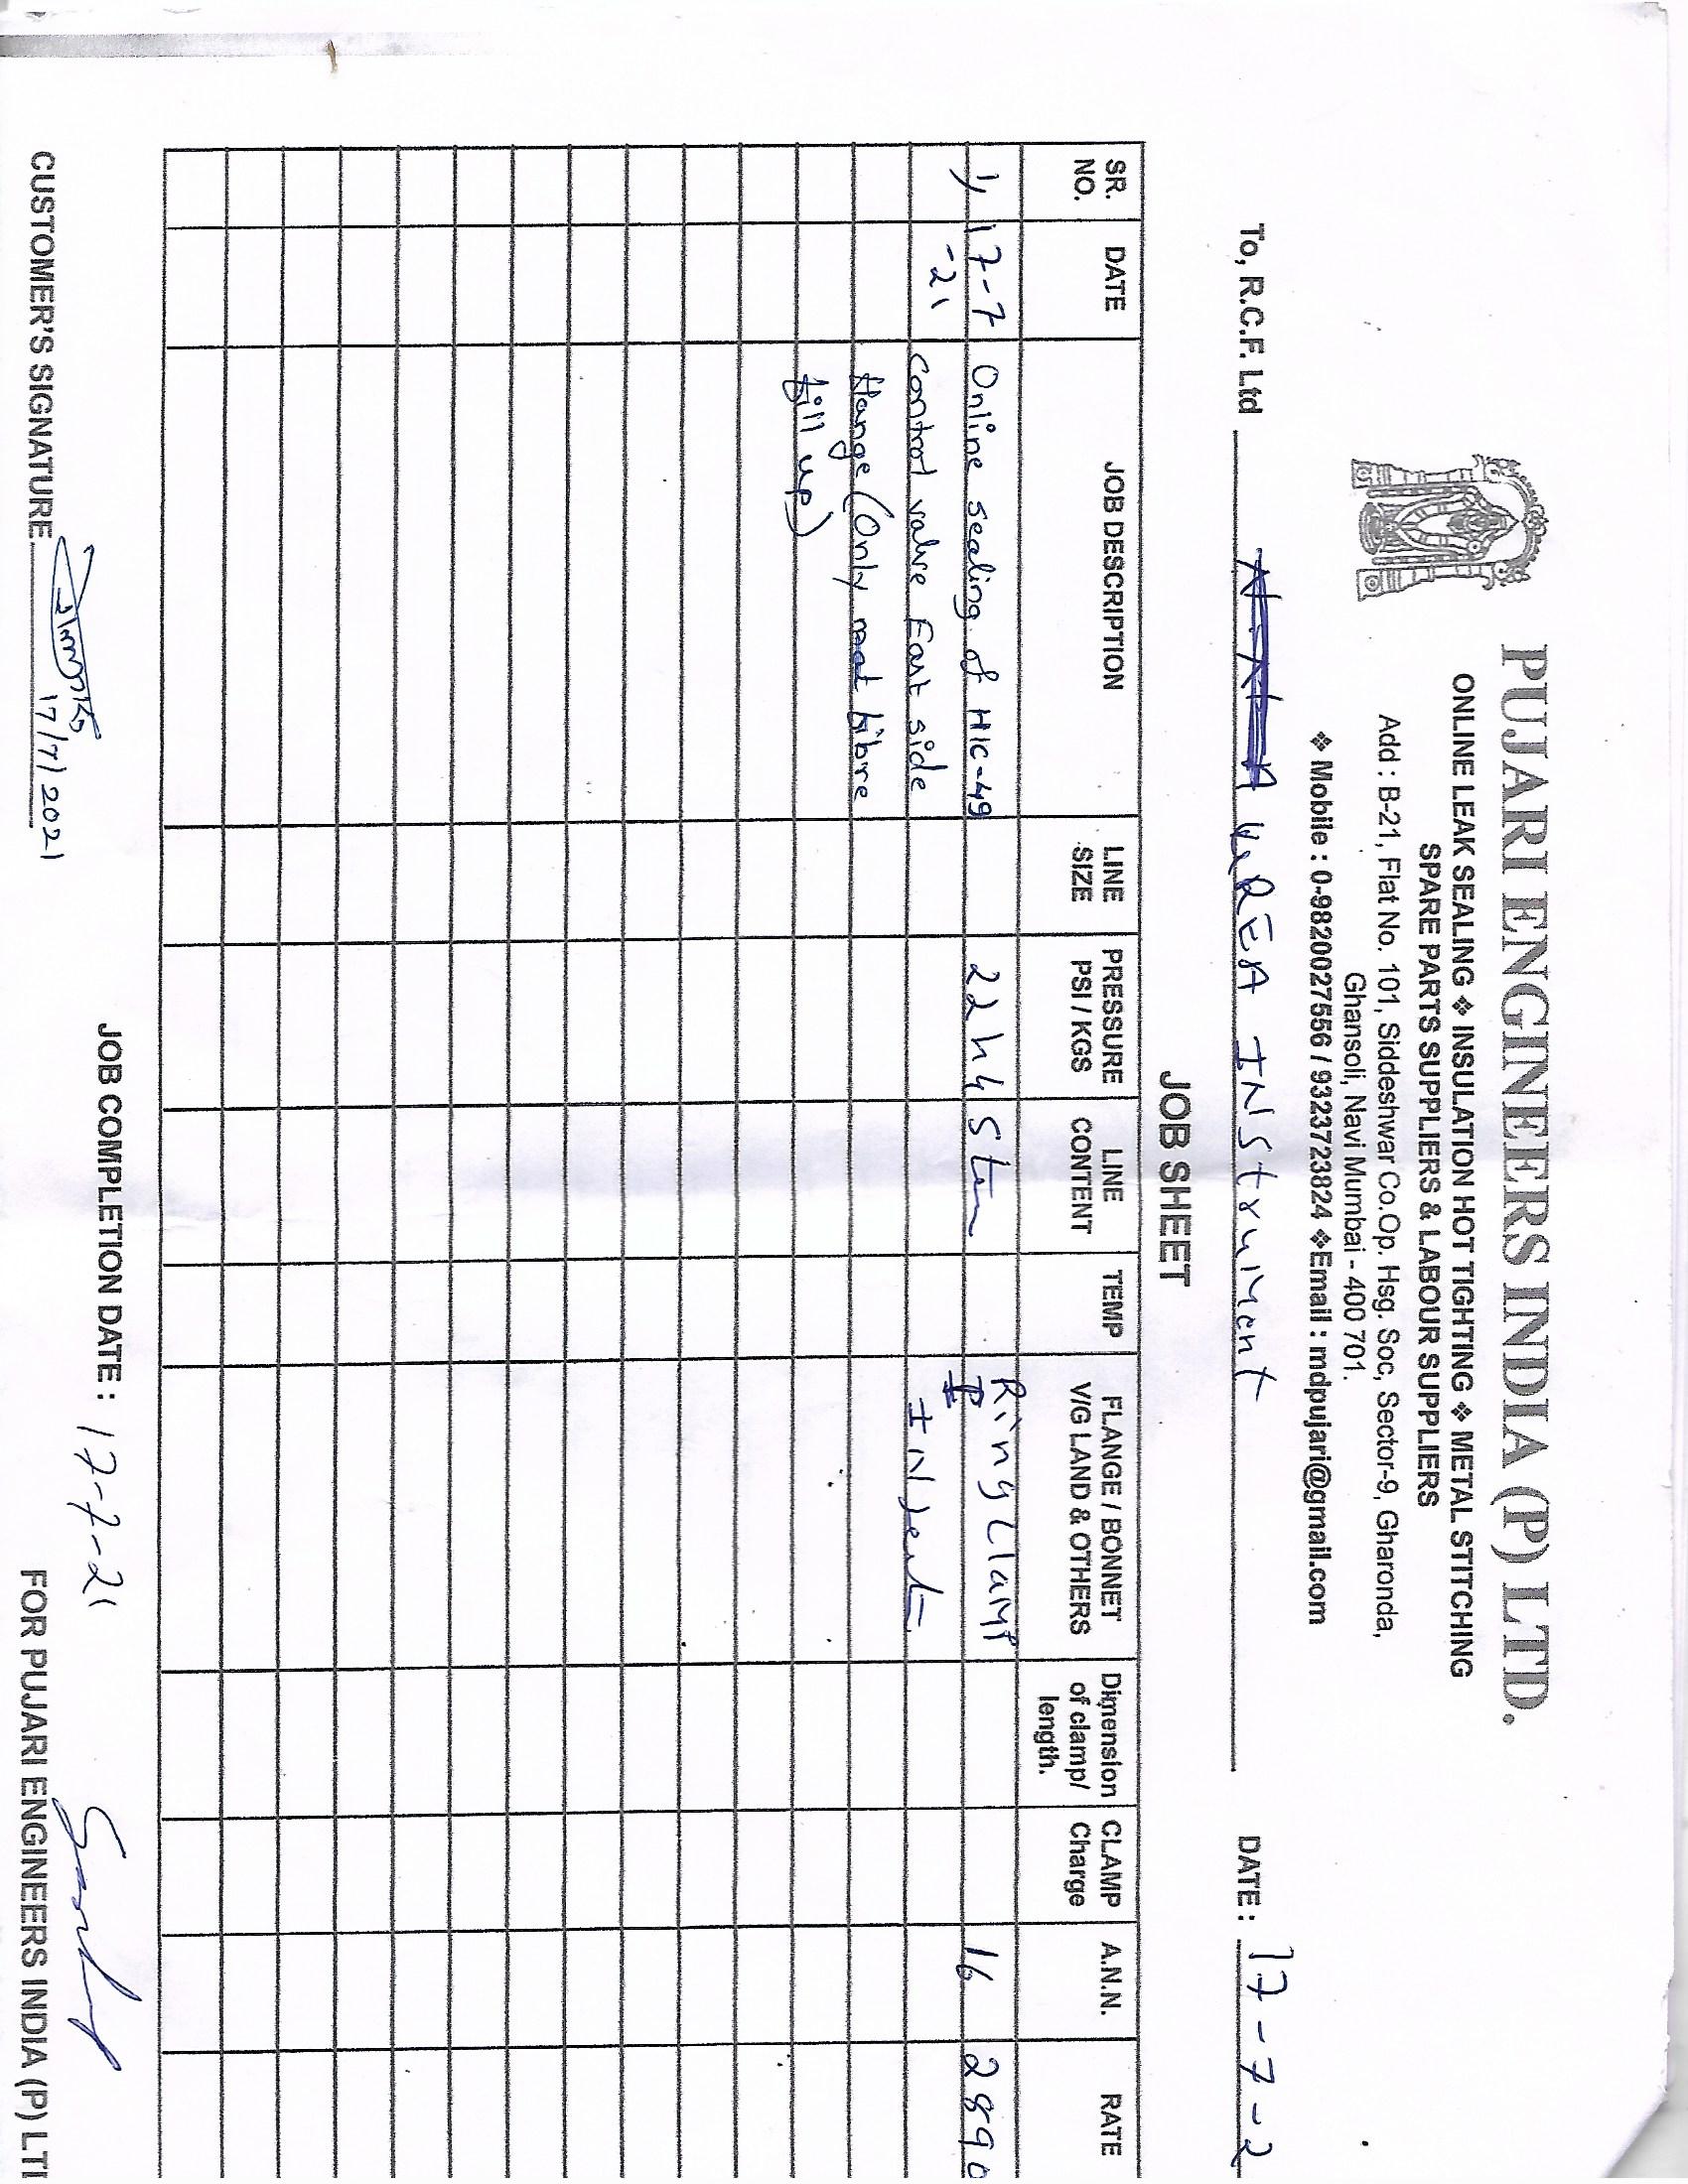 PUJARI ENGINEERS INDIA (P) LTD.
ONLINE LEAK SEALING ❖ INSULATION HOT TIGHTING ❖ METAL STITCHING
SPARE PARTS SUPPLIERS & LABOUR SUPPLIERS
Add : B-21, Flat No. 101, Siddeshwar Co.Op. Hsg. Soc, Sector-9, Gharonda,
Ghansoli, Navi Mumbai - 400 701.
❖ Mobile : 0-9820027556 / 9323723824 ❖Email : mdpujari@gmail.com
To, R.C.F. Ltd UREA INStrument DATE : 17-7-2
JOB SHEET
SR. NO. DATE JOB DESCRIPTION LINE SIZE PRESSURE PSI / KGS LINE CONTENT TEMP FLANGE / BONNET V/G LAND & OTHERS Dimension of clamp/ length. CLAMP Charge A.N.N. RATE
1) 17-7 Online sealing of HIC-49 Ring Clamp 16 2890
-21 Control valve East side
flange (Only fibre
fill up)
JOB COMPLETION DATE : 17-7-21
CUSTOMER'S SIGNATURE 17/7/2021 FOR PUJARI ENGINEERS INDIA (P) LT